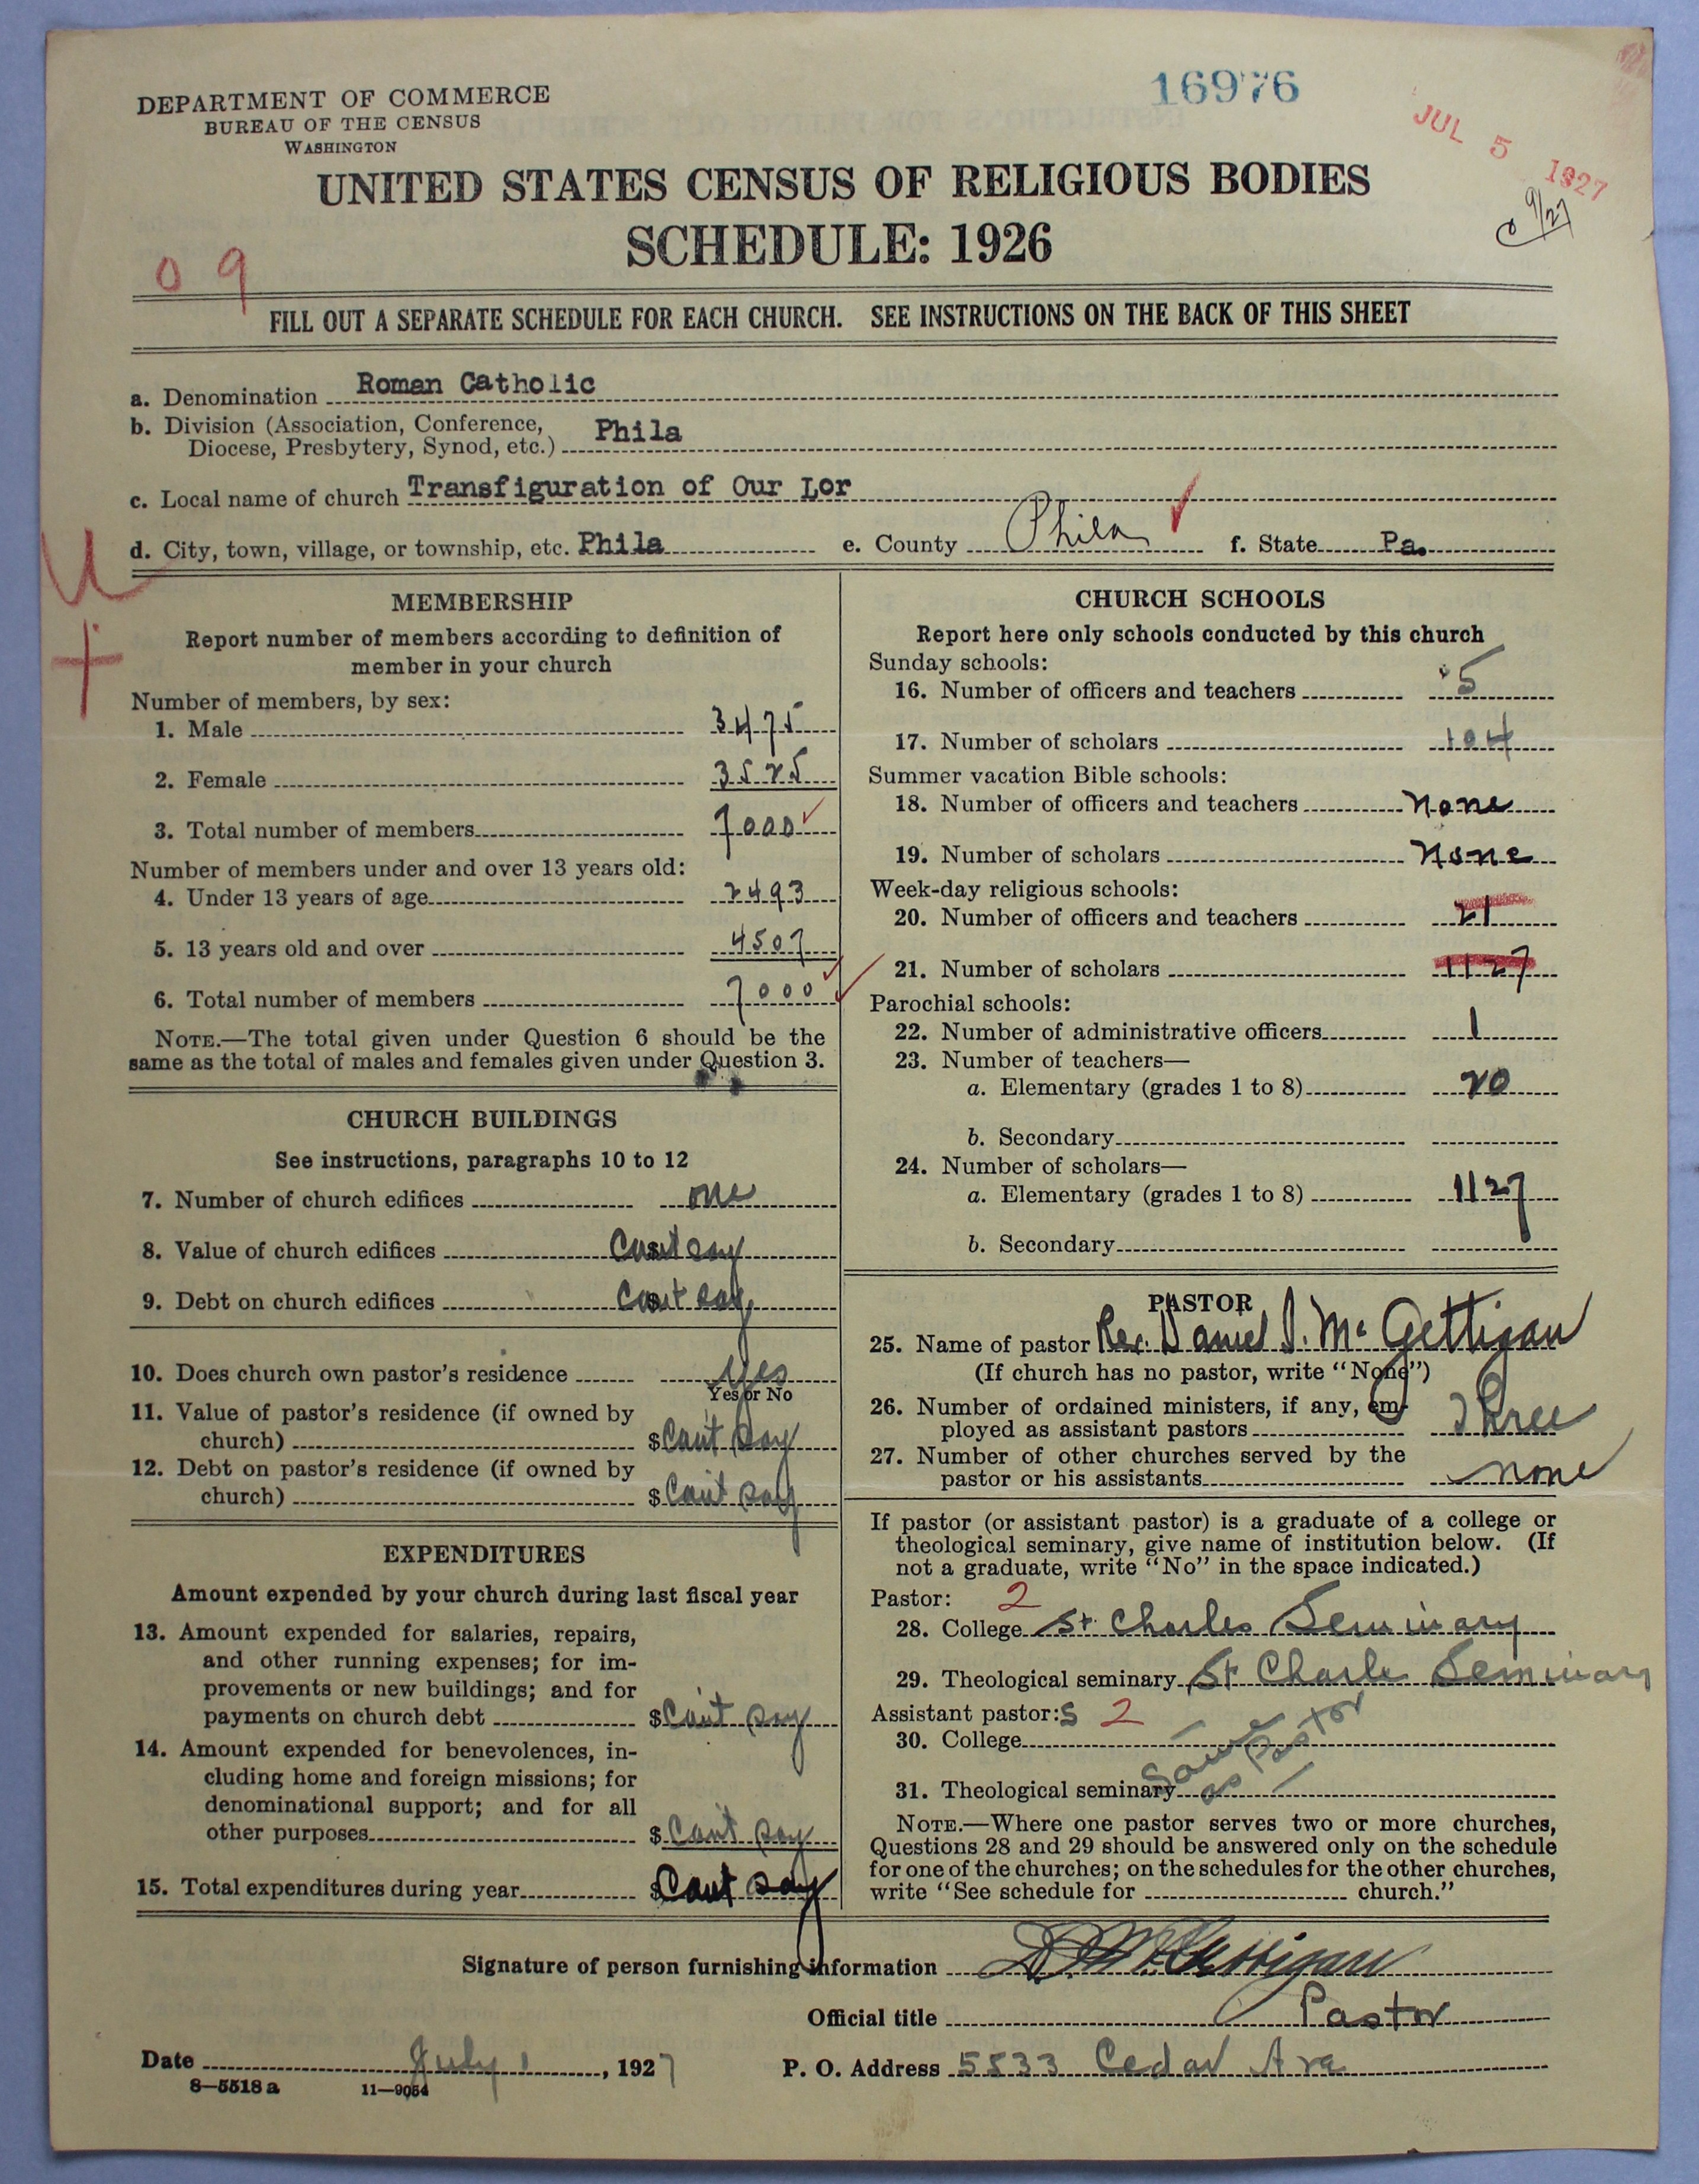 DEPARTMENT OF COMMERCE
BUREAU OF THE CENSUS
WASHINGTON
16976
JUL 5 1927
9/27
UNITED STATES CENSUS OF RELIGIOUS BODIES
SCHEDULE: 1926
0 9
FILL OUT A SEPARATE SCHEDULE FOR EACH CHURCH. SEE INSTRUCTIONS ON THE BACK OF THIS SHEET
a. Denomination Roman Catholic
b. Division (Association, Conference, Diocese, Presbytery, Synod, etc.) Phila
c. Local name of church Transfiguration of Our Lor
d. City, town, village, or township, etc. Phila e. County Phila f. State Pa.
MEMBERSHIP
Report number of members according to definition of
member in your church
Number of members, by sex:
1. Male 3475
2. Female 3525
3. Total number of members 7000
Number of members under and over 13 years old:
4. Under 13 years of age 2493
5. 13 years old and over 4507
6. Total number of members 7000
NOTE.—The total given under Question 6 should be the
same as the total of males and females given under Question 3.
CHURCH BUILDINGS
See instructions, paragraphs 10 to 12
7. Number of church edifices one
8. Value of church edifices $ Can't say
9. Debt on church edifices $ Can't say
10. Does church own pastor's residence Yes
Yes or No
11. Value of pastor's residence (if owned by
church) $ Can't say
12. Debt on pastor's residence (if owned by
church) $ Can't say
EXPENDITURES
Amount expended by your church during last fiscal year
13. Amount expended for salaries, repairs,
and other running expenses; for im-
provements or new buildings; and for
payments on church debt $ Can't say
14. Amount expended for benevolences, in-
cluding home and foreign missions; for
denominational support; and for all
other purposes $ Can't say
15. Total expenditures during year $ Cant say
CHURCH SCHOOLS
Report here only schools conducted by this church
Sunday schools:
16. Number of officers and teachers 5
17. Number of scholars 104
Summer vacation Bible schools:
18. Number of officers and teachers None
19. Number of scholars None
Week-day religious schools:
20. Number of officers and teachers 21
21. Number of scholars 1127
Parochial schools:
22. Number of administrative officers 1
23. Number of teachers—
a. Elementary (grades 1 to 8) 20
b. Secondary
24. Number of scholars—
a. Elementary (grades 1 to 8) 1127
b. Secondary
PASTOR
25. Name of pastor Rev. Daniel J. McGettigan
(If church has no pastor, write "None")
26. Number of ordained ministers, if any, em-
ployed as assistant pastors Three
27. Number of other churches served by the
pastor or his assistants none
If pastor (or assistant pastor) is a graduate of a college or
theological seminary, give name of institution below. (If
not a graduate, write "No" in the space indicated.)
Pastor: 2
28. College St Charles Seminary
29. Theological seminary St Charles Seminary
Assistant pastor:s 2
30. College
Same as Pastor
31. Theological seminary
NOTE.—Where one pastor serves two or more churches,
Questions 28 and 29 should be answered only on the schedule
for one of the churches; on the schedules for the other churches,
write "See schedule for church."
Signature of person furnishing information D. McGettigan
Official title Pastor
Date July 1, 1927 P. O. Address 5533 Cedar Ave
8—5518 a 11—9054